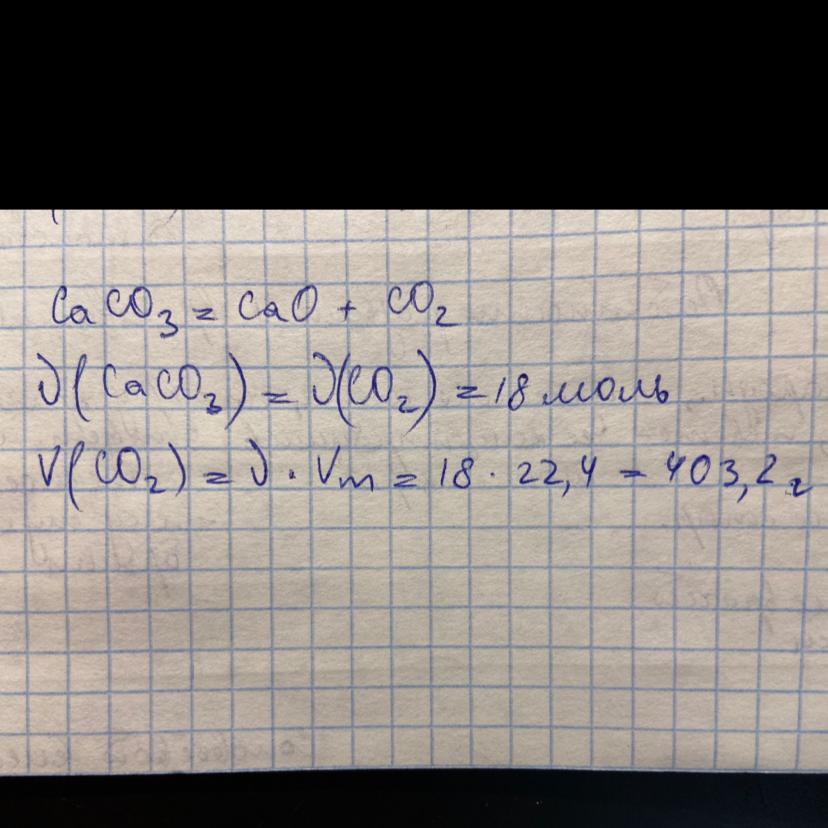 CaCO₃ = CaO + CO₂
ν(CaCO₃) = ν(CO₂) = 18 моль
V(CO₂) = ν · Vm = 18 · 22,4 = 403,2 г